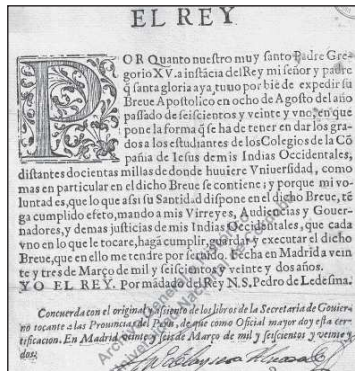 EL REY
POR Quanto nuestro muy santo Padre Gre-
gorio XV. a instãcia del Rey mi señor y padre
q̃ santa gloria aya, tuuo por biẽ de expedir su
Breue Apostolico en ocho de Agosto del año
passado de seiscientos y veinte y vno, en que
pone la forma q̃ se ha de tener en dar los gra-
dos a los estudiantes de los Colegios de la Cõ
pañia de Iesus de mis Indias Occidentales,
distantes docientas millas de donde huuiere Vniuersidad, como
mas en particular en el dicho Breue se contiene; y porque mi vo-
luntad es, que lo que assi su Santidad dispone en el dicho Breue, tẽ
ga cumplido efeto, mando a mis Virreyes, Audiencias y Gouer-
nadores, y demas justicias de mis Indias Occidentales, que cada
vno en lo que le tocare, haga cumplir, guardar y executar el dicho
Breue, que en ello me tendre por seruido. Fecha en Madrid a vein
te y tres de Março de mil y seiscientos y veinte y dos años.
YO EL REY. Por mãdado del Rey N.S. Pedro de Ledesma.
Concuerda con el original assiento de los libros de la Secretaria de Gouier
no tocante a las Prouincias del Peru, de que como Oficial mayor doy esta cer
tificacion. En Madrid, veinte y seis de Março de mil y seiscientos y veinte y
dos.